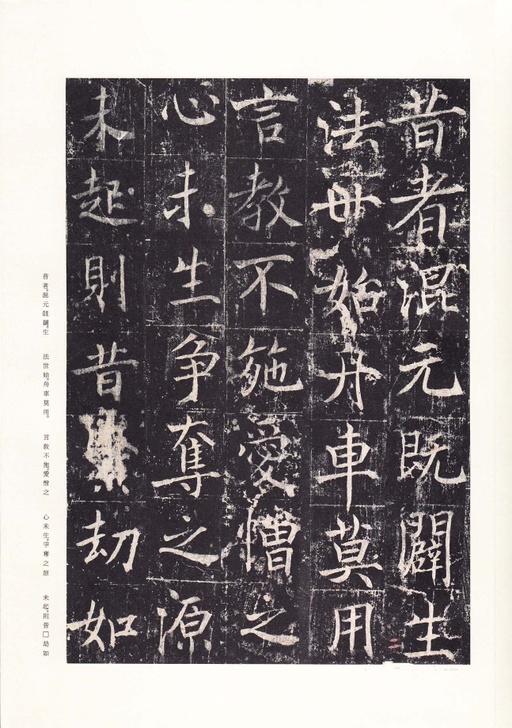 昔者混元既闢生
法世始舟車莫用
言教不施愛憎之
心未生爭奪之源
未起則昔劫如
昔者混元既闢生 法世始舟車莫用 言教不施愛憎之 心未生爭奪之源 未起則昔□劫如